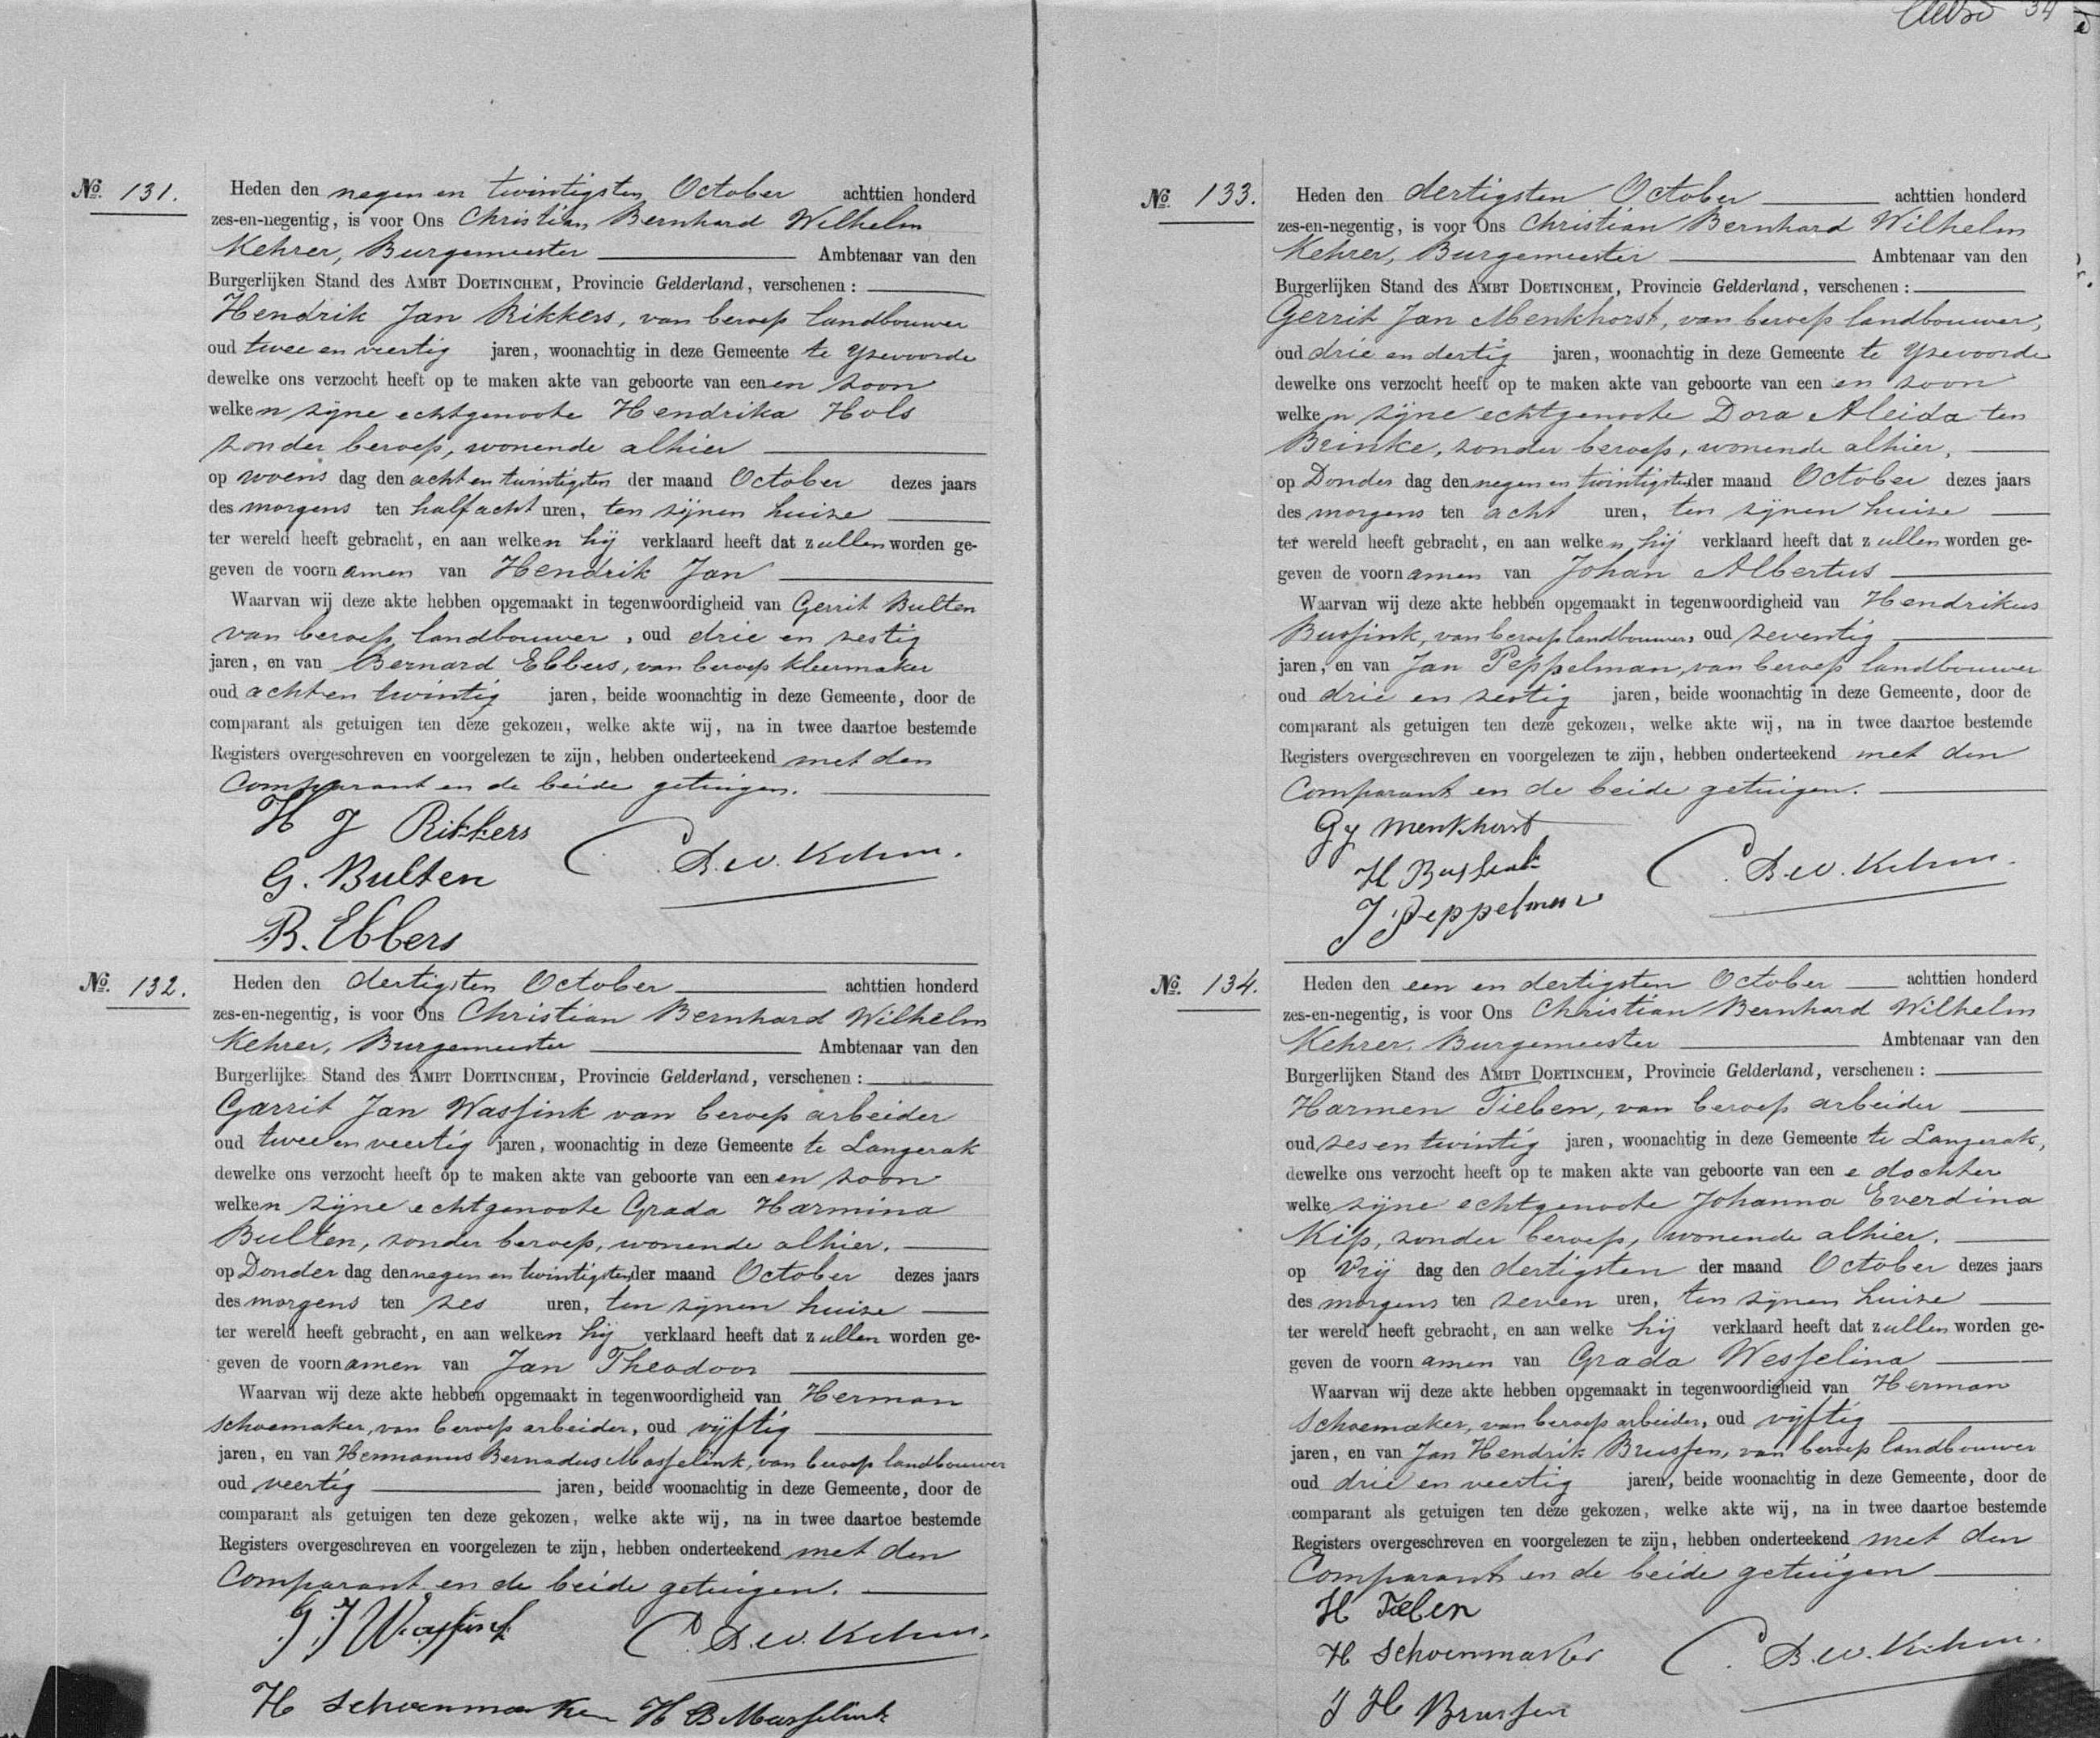 No. 131.
Heden den negen en twintigsten October achttien honderd
zes-en-negentig, is voor Ons Christian Bernhard Wilhelm
Kehrer, Burgemeester Ambtenaar van den
Burgerlijken Stand des AMBT DOETINCHEM, Provincie Gelderland, verschenen :
Hendrik Jan Rikkers, van beroep landbouwer
oud twee en veertig jaren, woonachtig in deze Gemeente te Yzevoorde
dewelke ons verzocht heeft op te maken akte van geboorte van eenen zoon
welken zijne echtgenoote Hendrika Hols
zonder beroep, wonende alhier
op woensdag den acht en twintigsten der maand October dezes jaars
des morgens ten half acht uren, ten zijnen huize
ter wereld heeft gebracht, en aan welken hij verklaard heeft dat zullen worden ge-
geven de voornamen van Hendrik Jan
Waarvan wij deze akte hebben opgemaakt in tegenwoordigheid van Gerrit Bulten
van beroep landbouwer, oud drie en zestig
jaren, en van Bernard Ebbers, van beroep kleermaker
oud acht en twintig jaren, beide woonachtig in deze Gemeente, door de
comparant als getuigen ten deze gekozen, welke akte wij, na in twee daartoe bestemde
Registers overgeschreven en voorgelezen te zijn, hebben onderteekend met den
Comparant en de beide getuigen.
H J Rikkers
G. Bulten
C. B. W. Kehrer.
B. Ebbers
No. 132.
Heden den dertigsten October achttien honderd
zes-en-negentig, is voor Ons Christian Bernhard Wilhelm
Kehrer, Burgemeester Ambtenaar van den
Burgerlijken Stand des AMBT DOETINCHEM, Provincie Gelderland, verschenen :
Garrit Jan Wassink van beroep arbeider
oud twee en veertig jaren, woonachtig in deze Gemeente te Langerak
dewelke ons verzocht heeft op te maken akte van geboorte van eenen zoon
welken zijne echtgenoote Grada Harmina
Bulten, zonder beroep, wonende alhier.
op Donderdag den negen en twintigsten der maand October dezes jaars
des morgens ten zes uren, ten zijnen huize
ter wereld heeft gebracht, en aan welken hij verklaard heeft dat zullen worden ge-
geven de voornamen van Jan Theodoor
Waarvan wij deze akte hebben opgemaakt in tegenwoordigheid van Herman
Schoemaker, van beroep arbeider, oud vijftig
jaren, en van Hermanus Bernadus Masselink, van beroep landbouwer
oud veertig jaren, beide woonachtig in deze Gemeente, door de
comparant als getuigen ten deze gekozen, welke akte wij, na in twee daartoe bestemde
Registers overgeschreven en voorgelezen te zijn, hebben onderteekend met den
Comparant en de beide getuigen.
G J Wassink
C. B. W. Kehrer.
H Schoenmaker H B Masselink
34
No. 133.
Heden den dertigsten October achttien honderd
zes-en-negentig, is voor Ons Christian Bernhard Wilhelm
Kehrer, Burgemeester Ambtenaar van den
Burgerlijken Stand des AMBT DOETINCHEM, Provincie Gelderland, verschenen :
Gerrit Jan Menkhorst, van beroep landbouwer,
oud drie en dertig jaren, woonachtig in deze Gemeente te Yzevoorde
dewelke ons verzocht heeft op te maken akte van geboorte van eenen zoon
welken zijne echtgenoote Dora Aleida ten
Brinke, zonder beroep, wonende alhier,
op Donderdag den negen en twintigsten der maand October dezes jaars
des morgens ten acht uren, ten zijnen huize
ter wereld heeft gebracht, en aan welken hij verklaard heeft dat zullen worden ge-
geven de voornamen van Johan Albertus
Waarvan wij deze akte hebben opgemaakt in tegenwoordigheid van Hendrikus
Bussink, van beroep landbouwer, oud zeventig
jaren, en van Jan Peppelman, van beroep landbouwer
oud drie en zestig jaren, beide woonachtig in deze Gemeente, door de
comparant als getuigen ten deze gekozen, welke akte wij, na in twee daartoe bestemde
Registers overgeschreven en voorgelezen te zijn, hebben onderteekend met den
Comparant en de beide getuigen.
G J Menkhorst
H Bussink
C. B. W. Kehrer.
J Peppelman
No. 134.
Heden den een en dertigsten October achttien honderd
zes-en-negentig, is voor Ons Christian Bernhard Wilhelm
Kehrer, Burgemeester Ambtenaar van den
Burgerlijken Stand des AMBT DOETINCHEM, Provincie Gelderland, verschenen :
Harmen Tieben, van beroep arbeider
oud zes en twintig jaren, woonachtig in deze Gemeente te Langerak,
dewelke ons verzocht heeft op te maken akte van geboorte van eene dochter
welke zijne echtgenoote Johanna Everdina
Kip, zonder beroep, wonende alhier.
op Vrijdag den dertigsten der maand October dezes jaars
des morgens ten zeven uren, ten zijnen huize
ter wereld heeft gebracht, en aan welke hij verklaard heeft dat zullen worden ge-
geven de voornamen van Grada Wesselina
Waarvan wij deze akte hebben opgemaakt in tegenwoordigheid van Herman
Schoemaker, van beroep arbeider, oud vijftig
jaren, en van Jan Hendrik Brussen, van beroep landbouwer
oud drie en veertig jaren, beide woonachtig in deze Gemeente, door de
comparant als getuigen ten deze gekozen, welke akte wij, na in twee daartoe bestemde
Registers overgeschreven en voorgelezen te zijn, hebben onderteekend met den
Comparant en de beide getuigen
H Tieben
H Schoenmaker
C. B. W. Kehrer.
J H Brussen